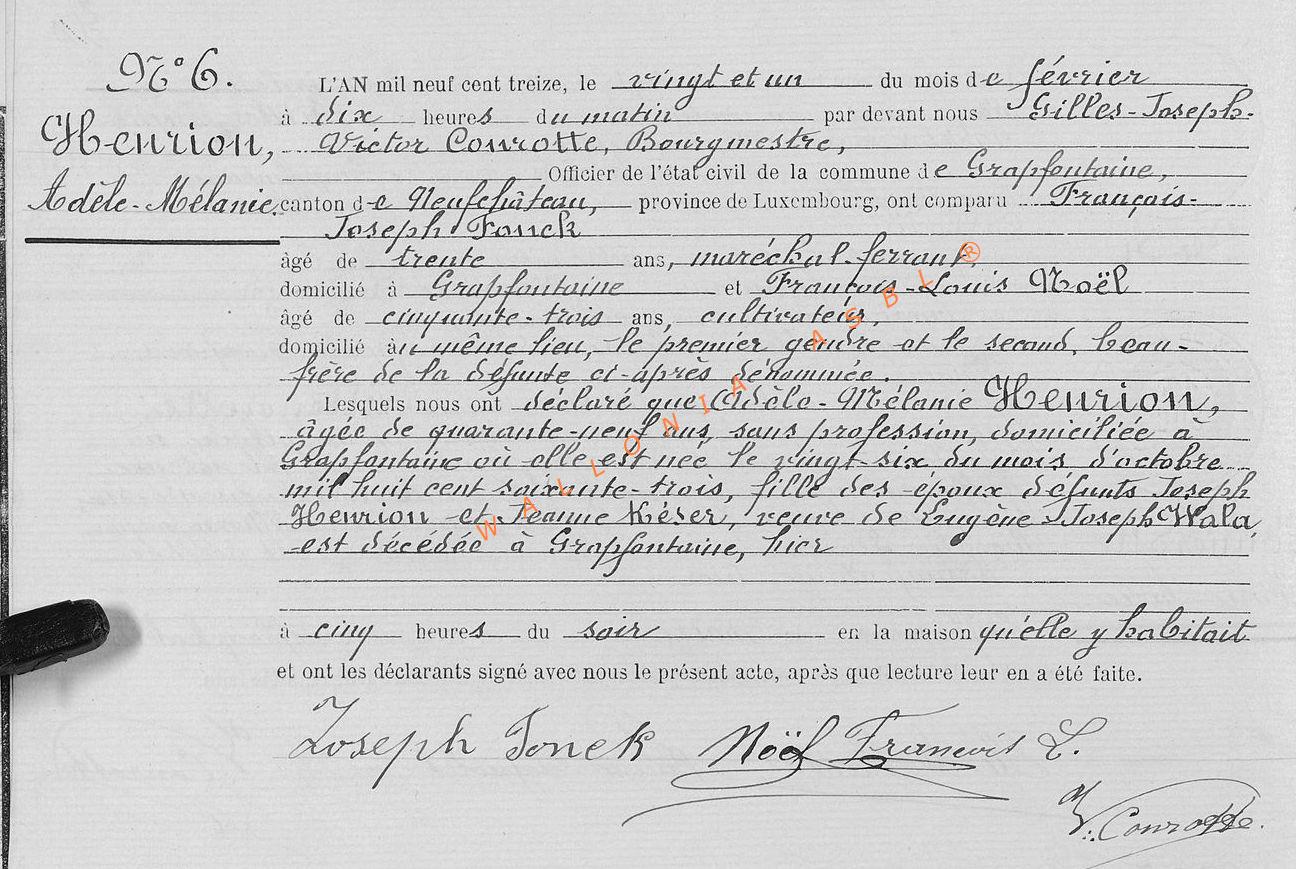 N° 6.
Henrion,
Adèle-Mélanie.
L'AN mil neuf cent treize, le vingt et un du mois de février
à dix heures du matin par devant nous Gilles-Joseph-
Victor Conrotte, Bourgmestre,
Officier de l'état civil de la commune de Grapfontaine,
canton de Neufchâteau, province de Luxembourg, ont comparu François-
Joseph Fonck
âgé de trente ans, maréchal-ferrant,
domicilié à Grapfontaine et François-Louis Noël
âgé de cinquante-trois ans, cultivateur,
domicilié au même lieu, le premier gendre et le second, beau-
frère de la défunte ci-après dénommée.
Lesquels nous ont déclaré que Adèle-Mélanie Henrion,
âgée de quarante-neuf ans, sans profession, domiciliée à
Grapfontaine où elle est née le vingt-six du mois d'octobre
mil huit cent soixante-trois, fille des époux défunts Joseph
Henrion et Jeanne Késer, veuve de Eugène-Joseph Wala,
est décédée à Grapfontaine, hier
à cinq heures du soir en la maison qu'elle y habitait
et ont les déclarants signé avec nous le présent acte, après que lecture leur en a été faite.
Joseph Fonck Noël François L.
V. Conrotte.
WALLONIA ASBL ®